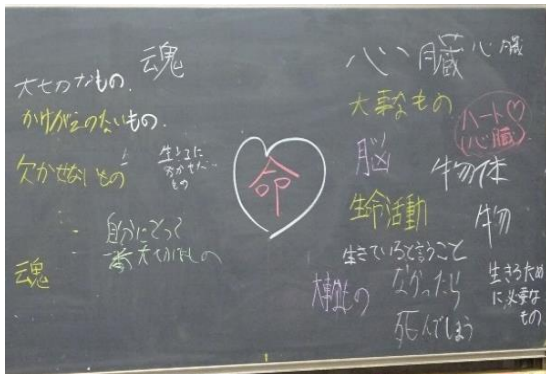 魂
大切なもの.
かけがえのないもの.
欠かせないもの
生きるに
欠かせない
もの
自分にとって
一番大切なもの
魂
命
心臓 心臓
大事なもの
ハート♡
(心臓)
脳
物体
生命活動
物
生きていると言うこと
大事なもの
なかったら
死んでしまう
生きるため
に必要な
もの